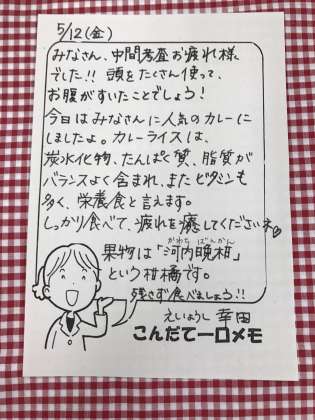 5/12(金)
みなさん、中間考査お疲れ様
でした!! 頭をたくさん使って、
お腹がすいたことでしょう!
今日はみなさんに人気のカレーに
しましたよ。カレーライスは、
炭水化物、たんぱく質、脂質が
バランスよく含まれ、またビタミンも
多く、栄養食と言えます。
しっかり食べて、疲れを癒してくださいネ♡
かわち ばんかん
果物は「河内晩柑」
という柑橘です。
残さず食べましょう!!
えいようし 幸田
こんだて一口メモ